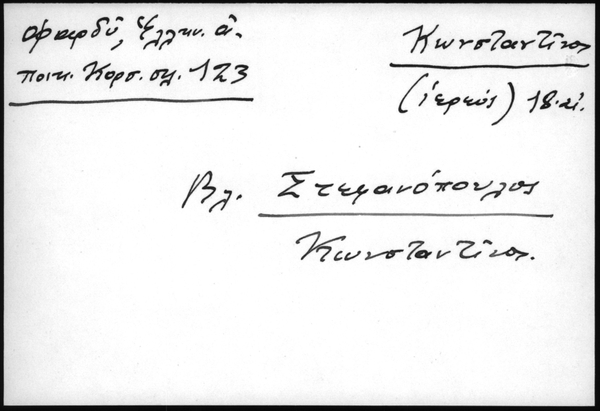 Φαρδύ, Ἑλλην. ἀ-
ποικ. Κορσ. σελ. 123
Κωνσταντῖνος
(ἱερεύς) 18. αἰ.
Βλ. Στεφανόπουλος
Κωνσταντῖνος.